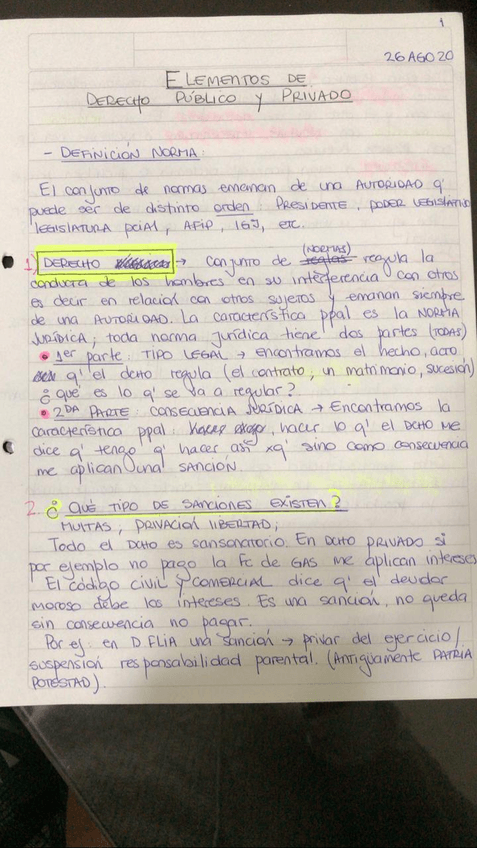 1
26 AGO 20
ELEMENTOS DE
DERECHO PÚBLICO Y PRIVADO
- DEFINICIÓN NORMA:
El conjunto de normas emanan de una AUTORIDAD q'
puede ser de distinto orden: PRESIDENTE, PODER LEGISLATIVO
LEGISLATURA PCIAL, AFIP, IGJ, etc.
(NORMAS)
1) DERECHO → conjunto de reglas regula la
conducta de los hombres en su interferencia con otros
es decir en relación con otros sujetos y emanan siempre
de una AUTORIDAD. La característica ppal es la NORMA
JURÍDICA; toda norma jurídica tiene dos partes (TODAS)
• 1er parte: TIPO LEGAL → encontramos el hecho, acto
q' el dcho regula (el contrato; un matrimonio, sucesión)
¿que es lo q' se va a regular?
• 2DA PARTE: CONSECUENCIA JURÍDICA → Encontramos la
característica ppal: hacer, hacer lo q' el DCHO me
dice q' tengo q' hacer así xq' sino como consecuencia
me aplican una SANCIÓN.
2. ¿QUÉ TIPO DE SANCIONES EXISTEN?
MULTAS, PRIVACIÓN LIBERTAD,
Todo el DCHO es sansonatorio. En DCHO PRIVADO si
por ejemplo no pago la Fc de GAS me aplican intereses
El código civil y COMERCIAL dice q' el deudor
moroso debe los intereses. Es una sanción, no queda
sin consecuencia no pagar.
Por ej: en D.FLIA una sanción → privar del ejercicio/
suspensión responsabilidad parental. (ANTIGUAMENTE PATRIA
POTESTAD).